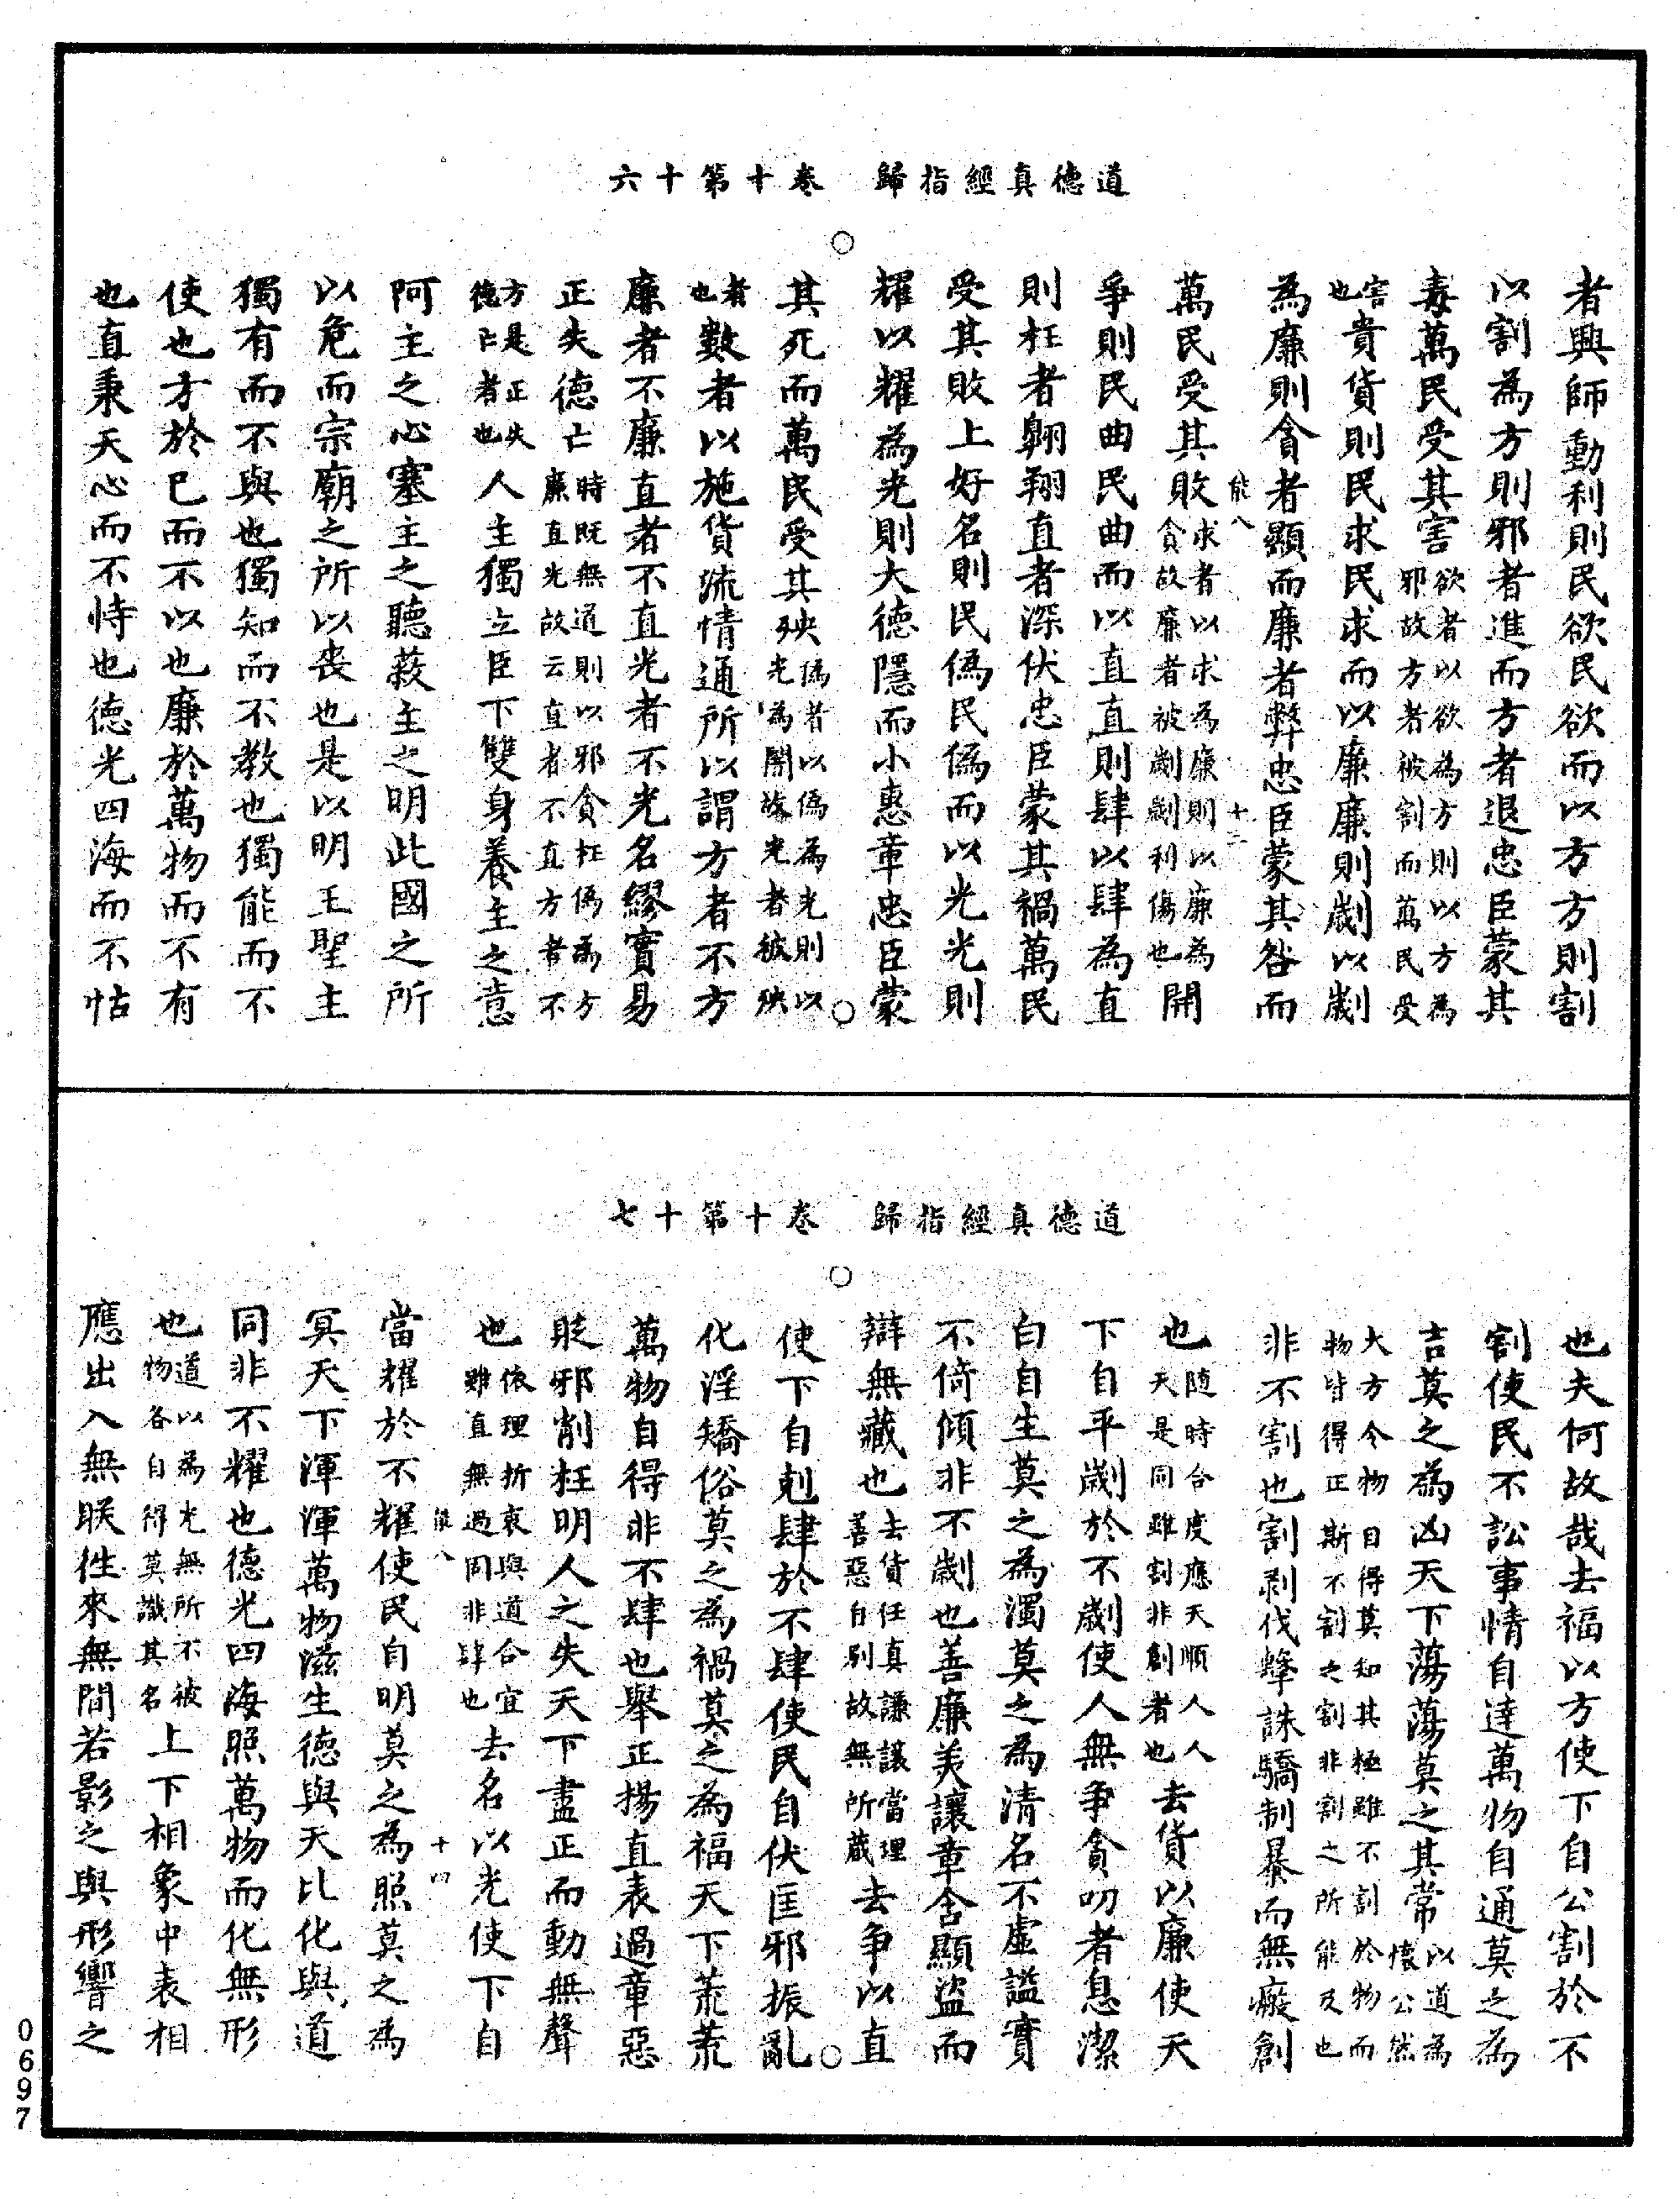 道德真經指歸　卷十第十六
者興師動利則民欲民欲而以方方則割
以割為方則邪者進而方者退忠臣蒙其
毒萬民受其害欲者以欲為方則以方為邪故方者被割而萬民受
害也貴貨則民求民求而以廉廉則劌以劌
為廉則貪者顯而廉者弊忠臣蒙其咎而
能八　十三
萬民受其敗求者以求為廉則以廉為貪故廉者被劌劌利傷也開
爭則民曲民曲而以直直則肆以肆為直
則枉者翱翔直者深伏忠臣蒙其禍萬民
受其敗上好名則民偽民偽而以光光則
耀以耀為光則大德隱而小惠章忠臣蒙
其死而萬民受其殃偽者以偽為光則以光為闇故光者被殃
者也數者以施貨流情通所以謂方者不方
廉者不廉直者不直光者不光名繆實易
正失德亡時既無通則以邪貪枉偽為方廉直光故云直者不直方者不
方是正失德亡者也人主獨立臣下雙身養主之意
阿主之心塞主之聽蔽主之明此國之所
以危而宗廟之所以喪也是以明王聖主
獨有而不與也獨知而不教也獨能而不
使也方於已而不以也廉於萬物而不有
也直秉天心而不恃也德光四海而不怙
道德真經指歸　卷十第十七
也夫何故哉去福以方使下自公割於不
割使民不訟事情自達萬物自通莫之為
吉莫之為凶天下蕩蕩莫之其常以道為懷公然
大方今物自得莫知其極雖不割於物而物皆得正斯不割之割非割之所能及也
非不割也割剥伐蜂誅驕制暴而無瘢創
也隨時合度應天順人人天是同雖割非創者也去貨以廉使天
下自平劌於不劌使人無爭貪叨者息潔
白自生莫之為濁莫之為清名不虛謚實
不倚傾非不劌也善廉美讓章含顯盜而
辯無藏也去貨任真謙讓當理善惡自別故無所藏去争以直
使下自剋肆於不肆使民自伏匡邪振亂
化淫矯俗莫之為禍莫之為福天下荒荒
萬物自得非不肆也舉正揚直表過章惡
貶邪削枉明人之失天下盡正而動無聲
也依理折衷與道合宜雖直無過固非肆也去名以光使下自
能八　十四
當耀於不耀使民自明莫之為照莫之為
冥天下渾渾萬物滋生德與天比化與道
同非不耀也德光四海照萬物而化無形
也道以為光無所不被物各自得莫識其名上下相象中表相
應出入無眹徃來無間若影之與形響之
0697